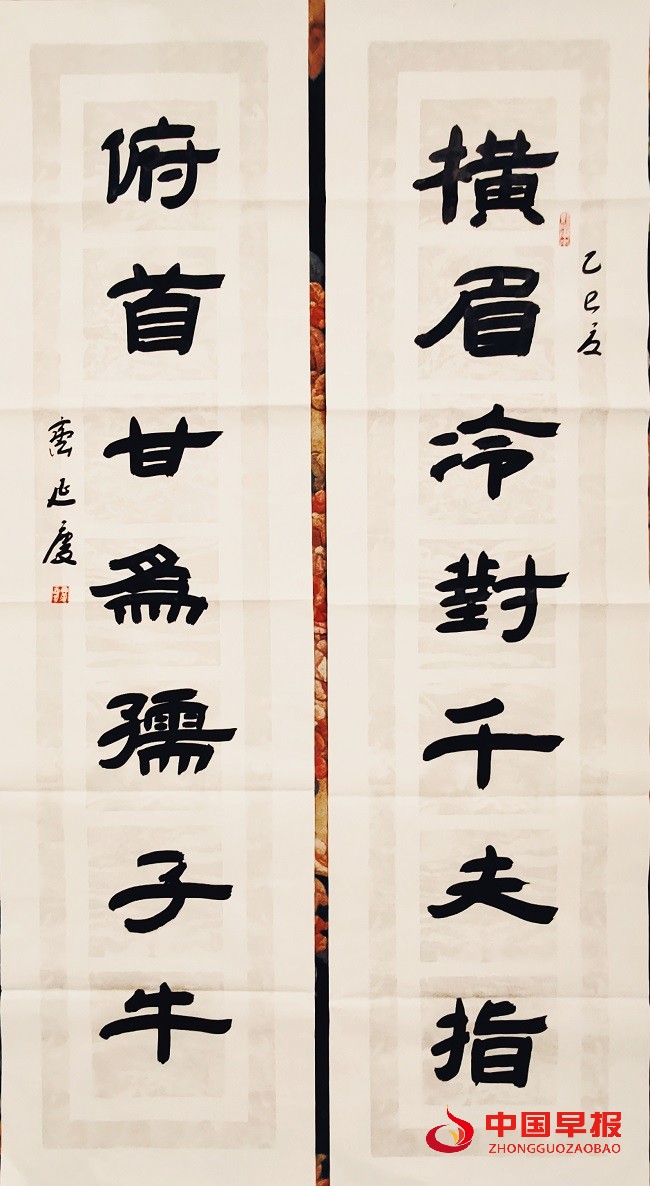 乙巳夏
橫眉冷對千夫指
俯首甘爲孺子牛
延慶
中国早报
ZHONGGUOZAOBAO